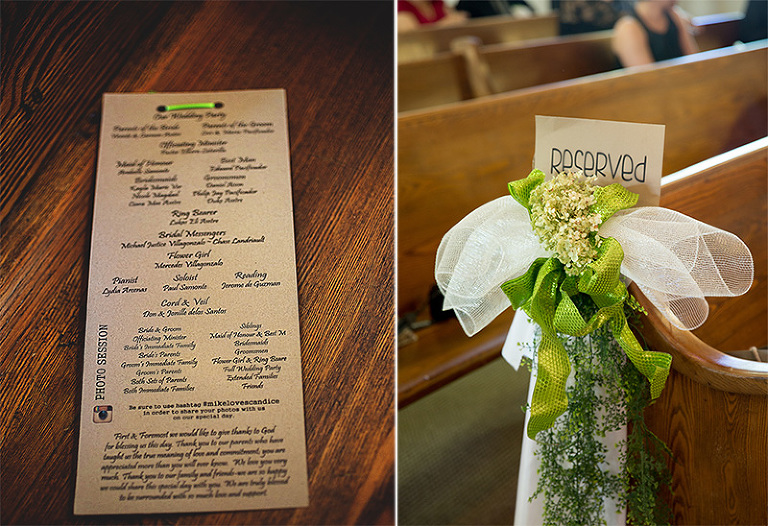 Our Wedding Party
Parents of the Bride Parents of the Groom
Officiating Minister
Maid of Honour Best Man
Bridesmaids Groomsmen
Ring Bearer
Bridal Messengers
Michael Justice Villagonzalo ~ Chase Landriault
Flower Girl
Mercedes Villagonzalo
Pianist Soloist Reading
Lydia Arenas Paul Samonte Jerome de Guzman
Cord & Veil
Don & Jenille delos Santos
PHOTO SESSION
Bride & Groom
Officiating Minister
Bride's Immediate Family
Bride's Parents
Groom's Immediate Family
Groom's Parents
Both Sets of Parents
Both Immediate Families
Siblings
Maid of Honour & Best M
Bridesmaids
Groomsmen
Flower Girl & Ring Beare
Full Wedding Party
Extended Families
Friends
Be sure to use hashtag #mikelovescandice
in order to share your photos with us
on our special day.
First & Foremost we would like to give thanks to God
for blessing us this day. Thank you to our parents who have
taught us the true meaning of love and commitment; you are
appreciated more than you will ever know. We love you very
much. Thank you to our family and friends-we are so happy
we could share this special day with you. We are truly blessed
to be surrounded with so much love and support
RESERVED